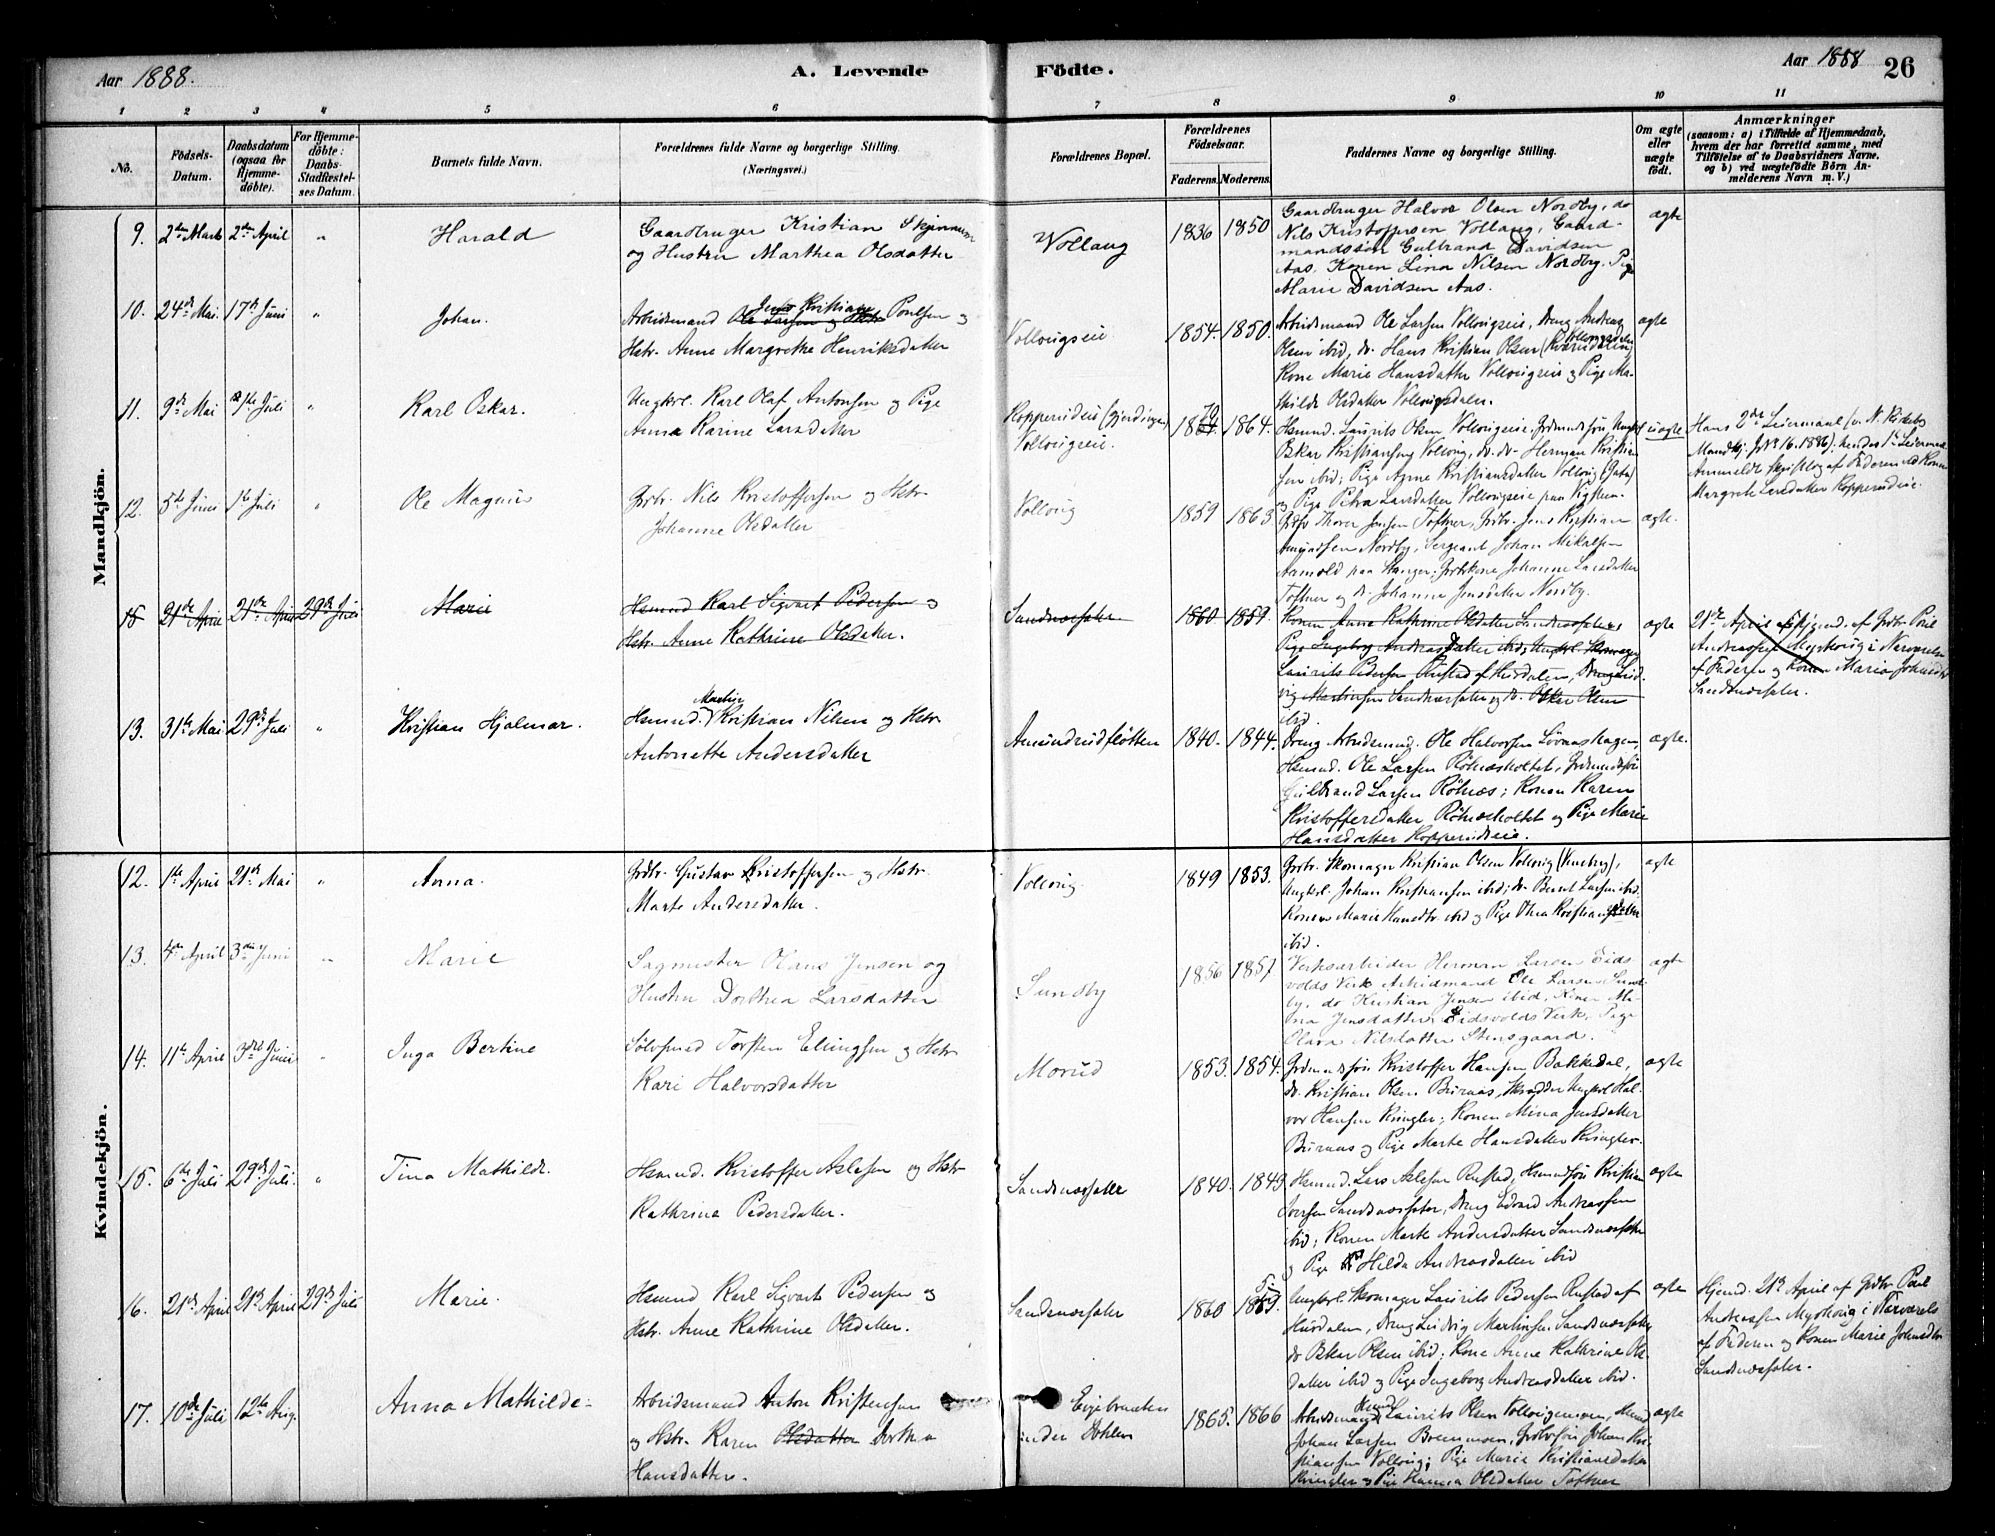 Aar 1888.
A. Levende
Födte.
Aar 1888
26
1 2 3 4 5 6 7 8 9 10 11
No.
Födsels-
Datum.
Daabsdatum
(ogsaa for
Hjemme-
döbte).
For Hjemme-
döbte:
Daabs-
Stadfæstel-
ses Datum.
Barnets fulde Navn.
Forældrenes fulde Navne og borgerlige Stilling.
(Næringsvei.)
Forældrenes Bopæl.
Forældrenes
Födselsaar.
Faderens. Moderens.
Faddernes Navne og borgerlige Stilling.
Om ægte
eller
uægte
födt.
Anmærkninger
(saasom: a) i Tilfælde af Hjemmedaab,
hvem der har forrettet samme, med
Tilföielse af to Daabsvidners Navne,
og b) ved uægtefödte Börn An-
melderens Navn m. V.)
Mandkjön.
9. 2den Marts 2den April " Harald
Gaardbruger Kristian
og Hustru Marthea Olsdatter
Vollaug 1836 1850
Gaardbruger Halvor Olsen Nordby, do
Nils Kristoffersen Vollaug, Gaard-
mandssön Gulbrand Davidsen
Aas. Konen Lina Nilsen Nordby. Pige
Marie Davidsen Aas.
ægte
10. 24de Mai. 17de Juni " Johan.
Jens Kristian
Arbeidsmand Ole Larsen og Hstr Poulsen og
Hstr. Anne Margrethe Henriksdatter
Vollougseie 1854. 1850.
Arbeidsmand Ole Larsen Vollougseie, Dreng Andreas
Olsen ibid, do. Hans Kristian Olsen
Kone Marie Hansdatter Vollougseie og Pige Ma-
thilde Olsdatter Vollougsdalen.
ægte
11. 9de Mai 1ste Juli " Karl Oskar.
Ungkrl. Karl Olaf Antonsen og Pige
Anna Karine Larsdatter
Kopperudeie
Vollougseie.
1864.
Hsmnd. Laurits Olsen Vollougseie,
Oskar Kristiansen Volloug, do. do. Herman Kristian-
sen ibid; Pige Agnes Kristiansdatter Volloug
og Pige Petra Larsdatter Vollougseie
uægte
Hans 2det Leiermaal
1886). hendes 1ste Leiermaal
Anmeldt skriftlig af Faderen ved Konen
Margrete Larsdatter Kopperudeie.
12. 5te Juni 1ste Juli " Ole Magnus
Grdbr. Nils Kristoffersen og Hstr.
Johanne Olsdatter
Volloug 1859 1863.
Grdbr Thorer Jensen Toftner, Grdbr. Jens Kristian
Amundsen Nordby, Sergeant Johan Mikalsen
paa Stanger; Grdbrkone Johanne Larsdatter
Toftner og do. Johanne Jensdatter Nordby.
ægte.
15 21de April 21de April 29de Juli Marie
Hsmnd Karl Sigvart Pedersen og
Hstr. Anne Kathrine Olsdatter.
Sandnæssæter 1860 1859.
Konen Anne Kathrine Olsdatter Sandnæssæter,
Pige Ingeborg Andreasdatter ibid, Ungkrl. Skomager
Laurits Pedersen Rustad af Hurdalen, Dreng Lud-
vig Martinsen Sandnæssæter og do. Oskar Olsen
ibid.
ægte
21de April Hjemd. af Grdbr Poul
Andreassen Myrhoug i
af Faderen og Konen Marie Johnsdtr
Sandnæssæter.
13. 31te Mai 29de Juli " Kristian Hjalmar.
Martin
Hsmnd. Kristian Nilsen og Hstr.
Antonette Andersdatter
Amundrudfløtten 1840. 1844.
Dreng Arbeidsmnd. Ole Halvorsen
Hsmnd. Ole Larsen Röhnesholtet, Grdmandssön
Gulbrand Larsen Röhnes; Konen Karen
Kristoffersdatter Röhnesholtet og Pige Marie
Hansdatter Kopperudseie.
ægte.
Kvindekjön.
12. 1ste April 21de Mai " Anna.
Grdbr. Gustav Kristoffersen og Hstr.
Marte Andersdatter.
Volloug. 1849 1853.
Grdbr. Skomager Kristian Olsen Volloug
Ungkrl. Johan Kristiansen ibid; do. Bernt Larsen ibid.
Konen Marie Hansdtr. ibid og Pige Thea Kristiansdatter
ibid.
ægte
13. 4de April 3die Juni " Marie
Sagmester Olaus Jensen og
Hustru Dorthea Larsdatter
Sundby 1856 1857
Verksarbeider Herman Larsen Eids-
volds Verk Arbeidmand Ole Larsen Sund-
by, do Kristian Jensen ibid, Konen Ma-
Jensdatter Eidsvolds Verk, Pige
Olava Nilsdatter Stensgaard.
ægte
14. 11te April 3die Juni " Inga Bertine
Sölvsmed Torsten Ellingsen og Hstr.
Kari Halvorsdatter
Morud 1853. 1854.
Grdmandssön Kristoffer Hansen Bakkedal,
do. Kristian Olsen Buraas, Skrædder Ungkrl Hal-
vor Hansen Kringler; Konen Mina Jensdatter
Buraas og Pige Marte Hansdatter Kringler.
ægte
15. 6te Juli 29de Juli. " Tina Mathilde.
Hsmnd. Kristoffer Aslesen og Hstr
Kathrina Pedersdatter.
Sandnæssæter 1840. 1849
Hsmnd. Lars Aslesen Rustad, Hsmandssön Kristian
Sandnæssæter, Dreng Edvard Andreassen
ibid; Konen Marte Andersdatter Sandnæssæter
og Pige Hilda Andreasdatter ibid
ægte
16. 21de April 21de April 29de Juli Marie.
Hsmnd Karl Sigvart Pedersen og
Hstr. Anne Kathrine Olsdatter.
Sandnæssæter 1860 1859.
Ungkrl. Skomager Laurits Pedersen Rustad af
Hurdalen, Dreng Ludvig Martinsen Sandnæssæter,
do Oskar Olsen ibid; Kone Anne Kathrine Ols-
datter ibid og Pige Ingeborg Andreasdatter ibid.
ægte
Hjemd. 21de April af Grdbr. Poul
Andreassen Myrhoug i
af Faderen og Konen Marie Johnsdtr
Sandnæssæter.
17. 10de Juli 12te Aug. Anna Mathilde
Arbeidsmand Anton Kristensen
og Hstr. Karen Olsdatter Dorthea
Hansdatter.
under Dohlen
1865. 1866
Arbeidsmand Laurits Olsen
Johan Larsen Grdbrsön Johan Kri-
stiansen Volloug; Pige Marie Kristiansdatter
Kringler og Pige Hanna Olsdatter Toftner
ægte